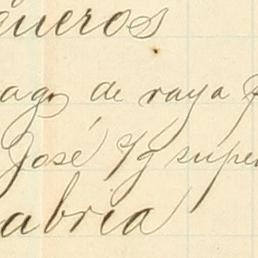 gueros
ago de raya f
José y/g super
abria